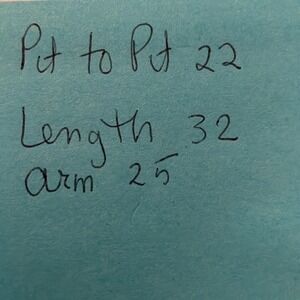 Pit to Pit 22
Length 32
arm 25